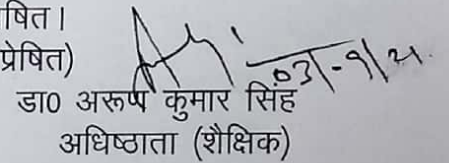 षित।
प्रेषित)
03/-9/21.
डा0 अरूण कुमार सिंह
अधिष्ठाता (शैक्षिक)